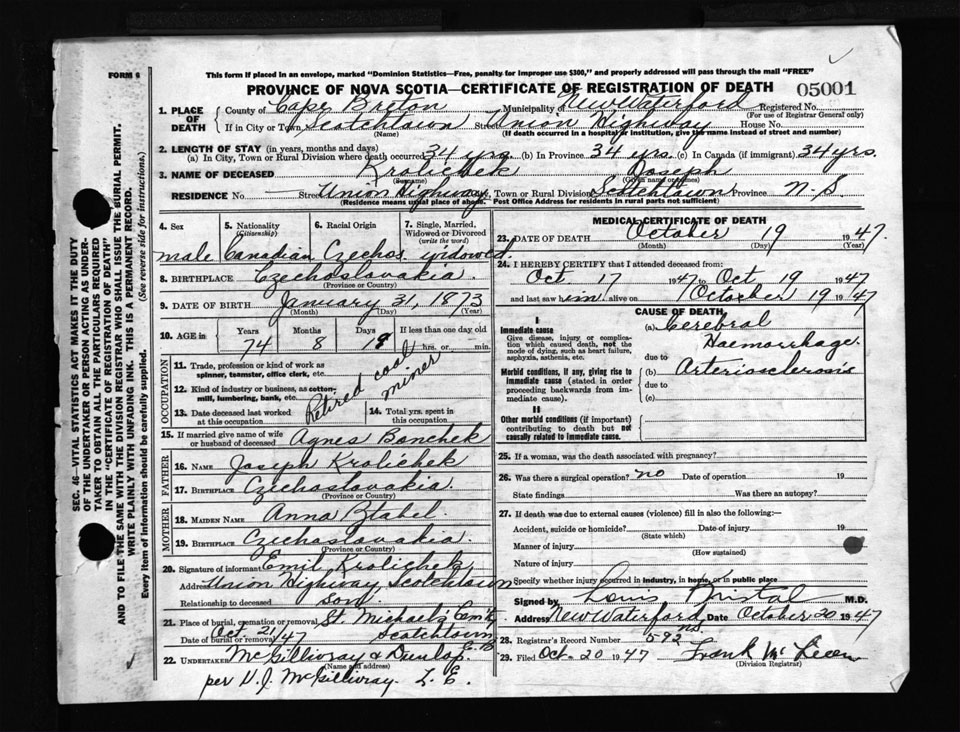 FORM 6
This form if placed in an envelope, marked "Dominion Statistics—Free, penalty for improper use $300," and properly addressed will pass through the mail "FREE"
PROVINCE OF NOVA SCOTIA—CERTIFICATE OF REGISTRATION OF DEATH 05001
1. PLACE OF DEATH
County of Cape Breton Municipality of New Waterford Registered No.
(For use of Registrar General only)
If in City or Town Scotchtown Street Union Highway House No.
(Name) (If death occurred in a hospital or institution, give the name instead of street and number)
2. LENGTH OF STAY (in years, months and days)
(a) In City, Town or Rural Division where death occurred 34 yrs. (b) In Province 34 yrs. (c) In Canada (if immigrant) 34 yrs.
3. NAME OF DECEASED Krolichek Joseph
(Surname) (Given name or names)
RESIDENCE No. Street Union Highway, Town or Rural Division Scotchtown Province N. S
(Residence means usual place of abode. Post Office Address for residents in rural parts not sufficient)
4. Sex
male
5. Nationality (Citizenship)
Canadian
6. Racial Origin
Czechos.
7. Single, Married, Widowed or Divorced (write the word)
widowed.
8. BIRTHPLACE Czechoslavakia.
(Province or Country)
9. DATE OF BIRTH January 31, 1873
(Month) (Day) (Year)
10. AGE in Years Months Days If less than one day old
74 8 19 hrs. or min.
OCCUPATION
11. Trade, profession or kind of work as spinner, teamster, office clerk, etc.
12. Kind of industry or business, as cotton-mill, lumbering, bank, etc.
Retired coal miner
13. Date deceased last worked at this occupation
14. Total yrs. spent in this occupation
15. If married give name of wife or husband of deceased Agnes Bonchek
FATHER
16. NAME Joseph Krolichek
17. BIRTHPLACE Czechoslavakia.
(Province or Country)
MOTHER
18. MAIDEN NAME Anna
19. BIRTHPLACE Czechoslavakia.
(Province or Country)
20. Signature of informant Emil Krolichek
Address Union Highway Scotchtown
Relationship to deceased son.
21. Place of burial, cremation or removal St. Michael's Cem'ty
Date of burial or removal Oct 21/47 Scotchtown C.B
22. UNDERTAKER McGillivray & Dunlop.
(Name and address)
per McGillivray. L. E.
MEDICAL CERTIFICATE OF DEATH
23. DATE OF DEATH October 19 1947.
(Month) (Day) (Year)
24. I HEREBY CERTIFY that I attended deceased from:
Oct 17 1947 to Oct 19 1947
and last saw him alive on October 19 1947
CAUSE OF DEATH
I
Immediate cause
Give disease, injury or complication which caused death, not the mode of dying, such as heart failure, asphyxia, asthenia, etc.
(a) Cerebral Haemorrhage.
due to
Morbid conditions, if any, giving rise to immediate cause (stated in order proceeding backwards from immediate cause).
(b) Arteriosclerosis
due to
(c)
II
Other morbid conditions (if important) contributing to death but not causally related to immediate cause.
25. If a woman, was the death associated with pregnancy?
26. Was there a surgical operation? no Date of operation 19
State findings Was there an autopsy?
27. If death was due to external causes (violence) fill in also the following:—
Accident, suicide or homicide? Date of injury 19
(State which)
Manner of injury
(How sustained)
Nature of injury
Specify whether injury occurred in industry, in home, or in public place
Signed by Louis Bristal M.D.
Address New Waterford ns. Date October 20 1947
28. Registrar's Record Number 592
29. Filed Oct. 20 1947 Frank
(Division Registrar)
SEC. 46—VITAL STATISTICS ACT MAKES IT THE DUTY
OF THE UNDERTAKER OR PERSON ACTING AS UNDER-
TAKER TO OBTAIN ALL THE PARTICULARS REQUIRED
IN THE "CERTIFICATE OF REGISTRATION OF DEATH"
AND TO FILE THE SAME WITH THE DIVISION REGISTRAR WHO SHALL ISSUE THE BURIAL PERMIT.
WRITE PLAINLY WITH UNFADING INK. THIS IS A PERMANENT RECORD.
Every item of information should be carefully supplied. (See reverse side for instructions.)